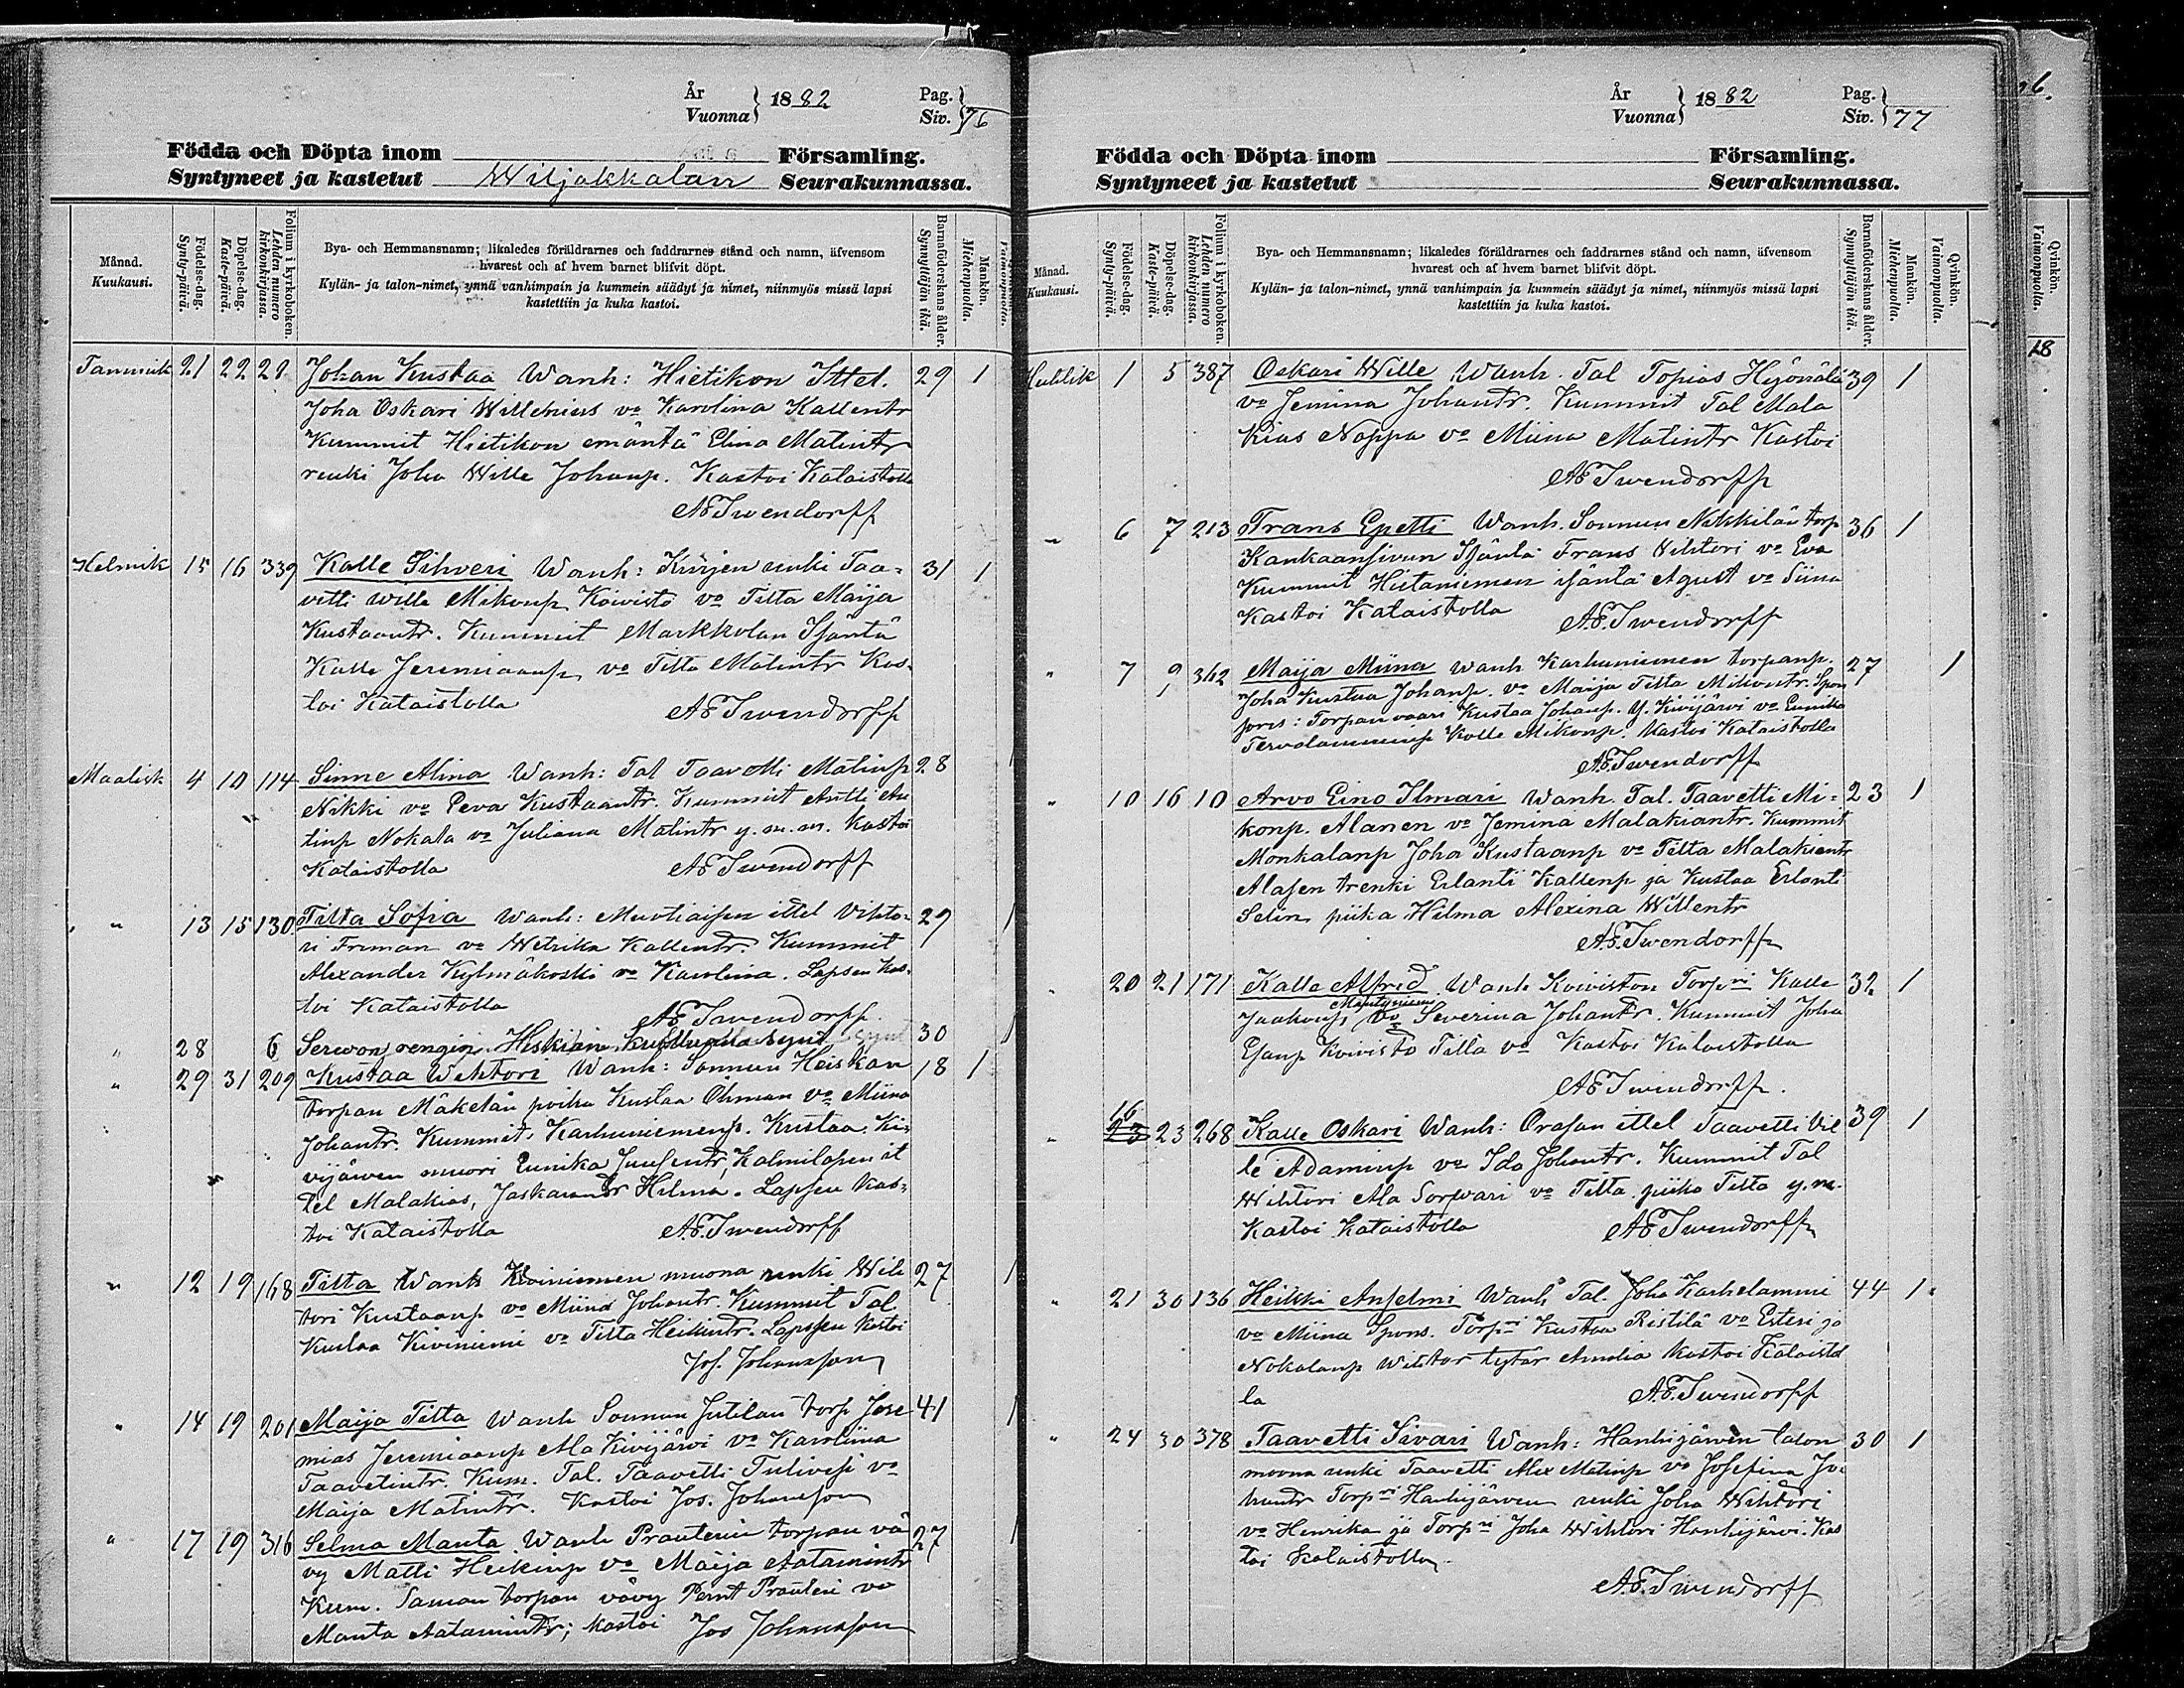 År
Vuonna } 1882
Pag.
Siv. } 76
Födda och Döpta inom Församling.
Syntyneet ja kastetut Wiljakkalan Seurakunnassa.
Månad.
Kuukausi.
Födelse-dag.
Synty-päivä.
Döpelse-dag.
Kaste-päivä.
Folium i kyrkoboken.
Lehden numero
kirkonkirjassa.
Bya- och Hemmansnamn; likaledes föräldrarnes och faddrarnes stånd och namn, äfvensom
hvarest och af hvem barnet blifvit döpt.
Kylän- ja talon-nimet, ynnä vanhimpain ja kummein säädyt ja nimet, niinmyös missä lapsi
kastettiin ja kuka kastoi.
Barnaföderskans ålder.
Synnyttäjän ikä.
Mankön.
Miehenpuolia.
Tammik 21 22 28 Johan Kustaa Wanh: Hietikon Ittel. 29 1
Joha Oskari Willenius vo Karolina Kallentr
Kummit Hietikon emäntä Elina Matintr
renki Joha Wille Johanp. Kastoi Kataistolla
AE Twendorff
Helmik 15 16 339 Kalle Sihveri Wanh: Kurjen renki Taa- 31 1
vetti Wille Mikonp Koivisto vo Tilta Maija
Kustaantr. Kummit Markkolan Isäntä
Kalle Jeremiaanp vo Tilta Matintr Kas-
toi Kataistolla AE Twendorff
Maalisk 4 10 114 Sinne Alina Wanh: Tal Taavetti Matinp 28
Nikki vo Eeva Kustaantr. Kummit Antti An
tinp Nokala vo Juliana Matintr y.m.m. Kastoi
Kataistolla AE Twendorff
" 13 15 130 Tilta Sofia Wanh: Muotiaisen ittel Vihto- 29 1
ri Friman vo Wetrika Kallentr. Kummit
Alexander Kylmäkoski vo Karolina. Lapsen Kas-
toi Kataistolla AE Twendorff
" 28 6 Serwon rengin Heskian synt 30 1
" 29 31 209 Kustaa Wihtori Wanh: Sonnun Heiskan 18 1
torpan Mäkelän poika Kustaa Öhman vo Miina
Johantr. Kummit, Karhuniemenp. Kustaa. Ki-
vijärven muori Eunika Juusentr, Kalmilapen it
tel Malakias, Hilma. Lapsen Kas-
toi Kataistolla A.E. Twendorff
" 12 19 168 Tilta Wanh Kiviniemen muona renki Wih 27 1
tori Kustaanp vo Miina Johantr. Kummit Tal.
Kustaa Kiviniemi vo Tilta Heikintr. Lapsen Kastoi
Jos. Johansson
" 14 19 201 Maija Tilta Wanh Sonnun Jutilan torp Jere 41 1
mias Jeremiaanp Ala Kivijärvi vo Karoliina
Taavetintr. Kum. Tal. Taavetti Tulivesi vo
Maija Matintr. Kastoi Jos. Johansson
" 17 19 316 Selma Manta Wanh Prauterin torpan vä 27 1
vy Matti Heikinp vo Maija Aatamintr
Kum. Saman torpan vävy Pernt Prauteri vo
Manta Aatamintr; Kastoi Jos Johansson
År
Vuonna } 1882
Pag.
Siv. } 77
Födda och Döpta inom Församling.
Syntyneet ja kastetut Seurakunnassa.
Månad.
Kuukausi.
Födelse-dag.
Synty-päivä.
Döpelse-dag.
Kaste-päivä.
Folium i kyrkoboken.
Lehden numero
kirkonkirjassa.
Bya- och Hemmansnamn; likaledes föräldrarnes och faddrarnes stånd och namn, äfvensom
hvarest och af hvem barnet blifvit döpt.
Kylän- ja talon-nimet, ynnä vanhimpain ja kummein säädyt ja nimet, niinmyös missä lapsi
kastettiin ja kuka kastoi.
Barnaföderskans ålder.
Synnyttäjän ikä.
Mankön.
Miehenpuolia.
Qvinkön.
Vaimonpuolia.
Huhtik 1 5 387 Oskari Wille Wanh. Tal Topias Hejönälä 39 1
vo Jemina Johantr. Kummit Tal Mala
kias Noppa vo Miina Matintr Kastoi
AE Twendorff
" 6 7 213 Frans Epetti Wanh. Sonnun Nikkilän torp 36 1
Kankaansivun Isäntä Frans Wihtori vo Eva
Kummit Hietaniemen isäntä Agust vo Siina
Kastoi Kataistolla A.E. Twendorff
" 7 9 342 Maija Miina Wanh Karhuniemen torpanp. 27 1
Joha Kustaa Johanp. vo Maija Tilta Mikontr. Spon
sores: Torpan vaari Kustaa Johanp. Y. Kivijärvi vo Eunika
Tervalammenp Kalle Mikonp. Kastoi Kataistolla
AE Twendorff
" 10 16 10 Arvo Eino Ilmari Wanh. Tal. Taavetti Mi- 23 1
konp. Alanen vo Jemina Malakiantr. Kummit
Monkalanp Joha Kustaanp vo Tilta Malakiantr
Alasen trenki Erlanti Kallenp ja Kustaa Erlanti
Selin, piika Hilma Alexina Willentr
A.E. Twendorff
" 20 21 171 Kalle Alfrid Wanh Koiviston Torpri Kalle 32 1
Mäntyniemi
Jaakonp. vo Severina Johantr. Kummit Joha
Esanp Koivisto Tilta vo Kastoi Kataistolla
AE Twendorff.
16
" 23 23 268 Kalle Oskari Wanh: Orasan ittel Taavetti Vil 39 1
le Adaminp vo Ida Johantr. Kummit Tal
Wihtori Ala Sorwari vo Tilta piika Tilta y.m.
Kastoi Kataistolla AE Twendorff
" 21 30 136 Heikki Anselmi Wanh Tal. Joha Karhelammi 44 1
vo Miina Spons. Torpri Kustaa Ristilä vo Esteri ja
Nokalanp Wihtor tytär Amalia Kastoi Kataistol
la A.E. Twendorff
" 24 30 378 Taavetti Sivari Wanh: Hanhijärven talon 30 1
moona renki Taavetti Alex Matinp vo Josefina Jo-
hantr Torpri Hanhijärven renki Joha Wihtori
vo Henrika ja Torpri Joha Wihtori Hanhijärvi. Kas
toi Kataistolla.
A.E. Twendorff
Qvinkön.
Vaimonpuolia.
18